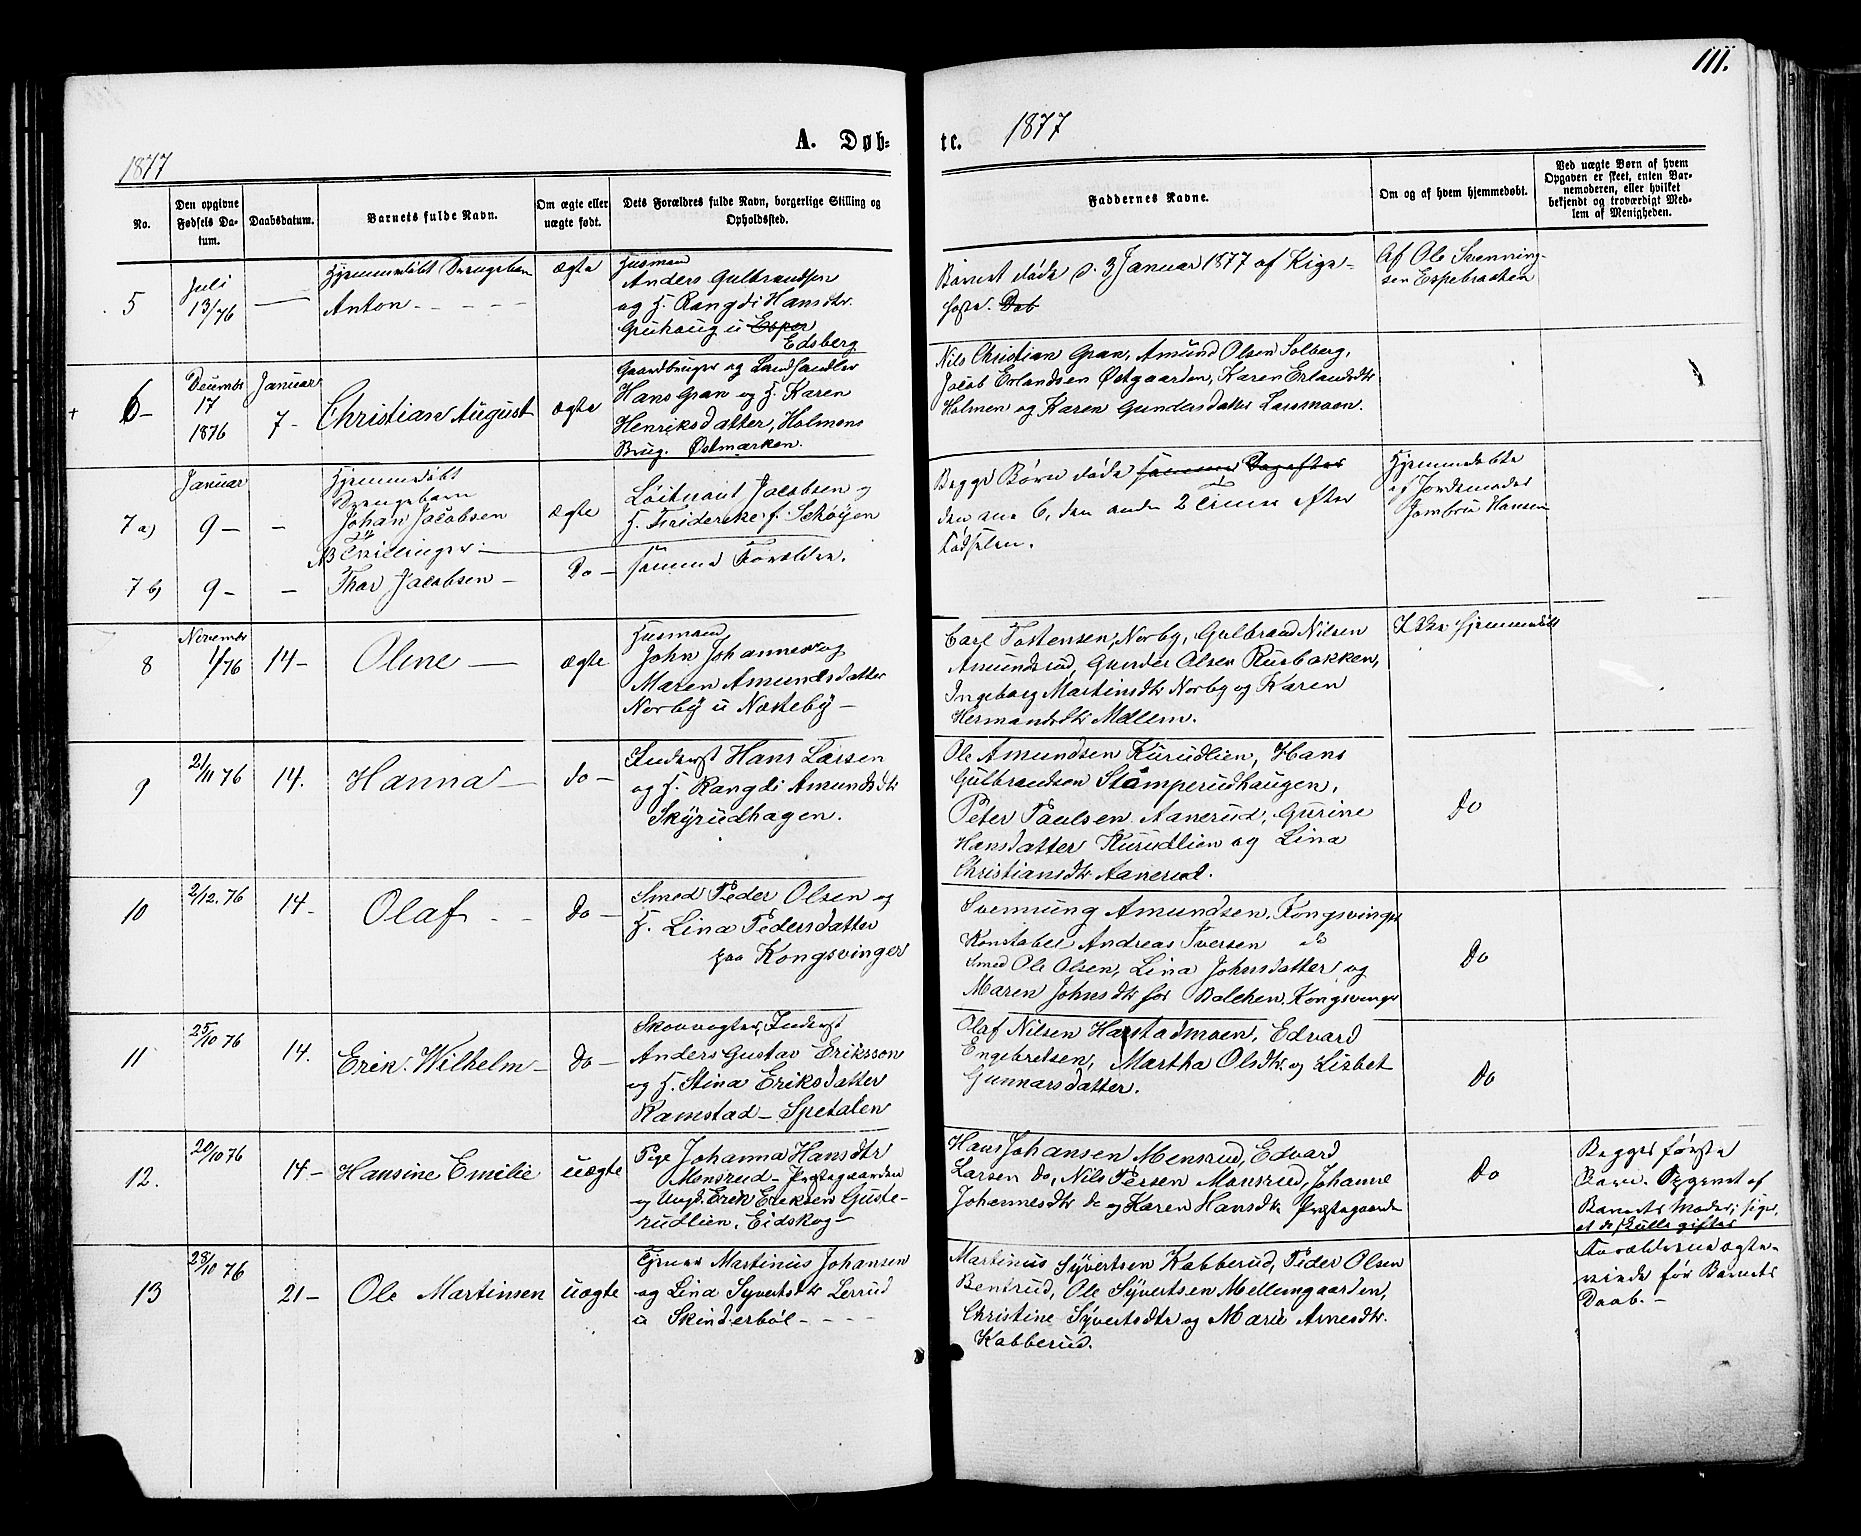 111.
1877
A. Døb-
te.
1877
No.
Den opgivne Fødsels Da-
tum.
Daabsdatum.
Barnets fulde Navn.
Om ægte eller
uægte født.
Dets Forældres fulde Navn, borgerlige Stilling og
Opholdssted.
Faddernes Navne.
Om og af hvem hjemmedøbt.
Ved uægte Børn af hvem
Opgaven er skeet, enten Bar-
nemoderen, eller hvilket
bekjendt og troværdigt Med-
lem af Menigheden.
5
Juli
13/76
Hjemmedøbt Drengebarn
Anton - - - - -
ægte
Husmand
Anders Gulbrandsen
og H. Rangdi Hansdtr.
Gruhaug u Esper
Edsberg
Barnet døde d. 3 Januar 1877 af Kig-
hoste. Dob
Af Ole Svenning-
sen Espebraaten
+
6-
Decembr
17
1876
Januar
7-
Christian August
ægte
Gaardbruger og Landhandler
Hans Gran og H. Karen
Henriksdatter, Holmens
Brug. Østmarken.
Nils Christian Gran, Amund Olsen Solberg,
Jacob Erlandsen Østgaarden, Karen Erlandsdtr
Holmen og Karen Gundersdatter Larsmoen.
7 a)
Januar
9-
-
Hjemmedøbt
Drengebarn
Johan Jacobsen
NB Tvillinger -
ægte
Løitnant Jacobsen og
H. Friderekke f. Schøyen
Begge Børn døde samme Dag efter
den ene 6, den anden 2 Timer efter
Fødselen.
Hjemmedøbte
af Jordemoder
Jambru Hansen
7 b)
9-
-
Thor Jacobsen -
Do -
samme Forældre.
8
Novembr
1/76
14-
Oline -
ægte
Husmand
John Johannes og
Maren Amundsdatter
Norby u Nokeby -
Carl Tostensen, Norby, Gulbrand Nilsen
Amundsrud, Gunder Olsen Rusbakken,
Ingeborg Martinsdtr Norby og Karen
Hermansdtr Mellem.
Ikke hjemmedøbt
9
21/11 76
14.
Hanna -
do -
Inderst Hans Larsen
og H. Rangdi Amundsdtr
Skyrudhagen.
Ole Amundsen Kurudlien, Hans
Gulbrandsen Stomperudhaugen,
Peter Paulsen Aanerud, Gurine
Hansdatter Kurudlien og Lina
Christiansdtr Aanerud.
Do
10
2/12. 76
14-
Olaf - -
do -
Smed Peder Olsen og
H. Lina Pedersdatter
paa Kongsvinger
Svennung Amundsen, Kongsvinger
Konstabel Andreas Iversen do
Smed Ole Olsen, Lina Johnsdatter og
Maren Johnsdtr for Balchen, Kongsvinger
Do
11
25/10 76
14.
Erik Wilhelm -
Do -
Skovvogter, Inderst
Anders Gustav Eriksson
og H. Stina Eriksdatter
Ramstad - Spetalen
Olaf Nilsen Harstadmoen, Edvard
Engebretsen, Martha Olsdtr. og Lisbet
Gunnarsdatter.
Do
12.
20/10 76
14-
Hansine Emilie
uægte
Pige Johanna Hansdtr
Monsrud - Prestegaarden
og Ungk. Erik Eriksen Guste-
rudlien. Eidskog -
Hans Johansen Mensrud, Edvard
Larsen do, Nils Persen Monsrud, Johanne
Johannesdtr do og Karen Hansdtr Prestegaarden
Do
Begges første
Barn. Opgivet af
Barnets Moder; siger,
at de skulle giftes
13
28/10 76
21-
Ole Martinsen
uægte
Tjener Martinius Johansen
og Lina Syvertsdtr Lerrud
u Skinderbøl - - - -
Martinus Syvertsen Kabberud, Peder Olsen
Bentrud, Ole Syvertsen Mellemgaarden,
Christine Syvertsdtr og Marie Arnesdtr.
Kabberud.
Forældrene ægte-
viede før Barnets
Daab. -